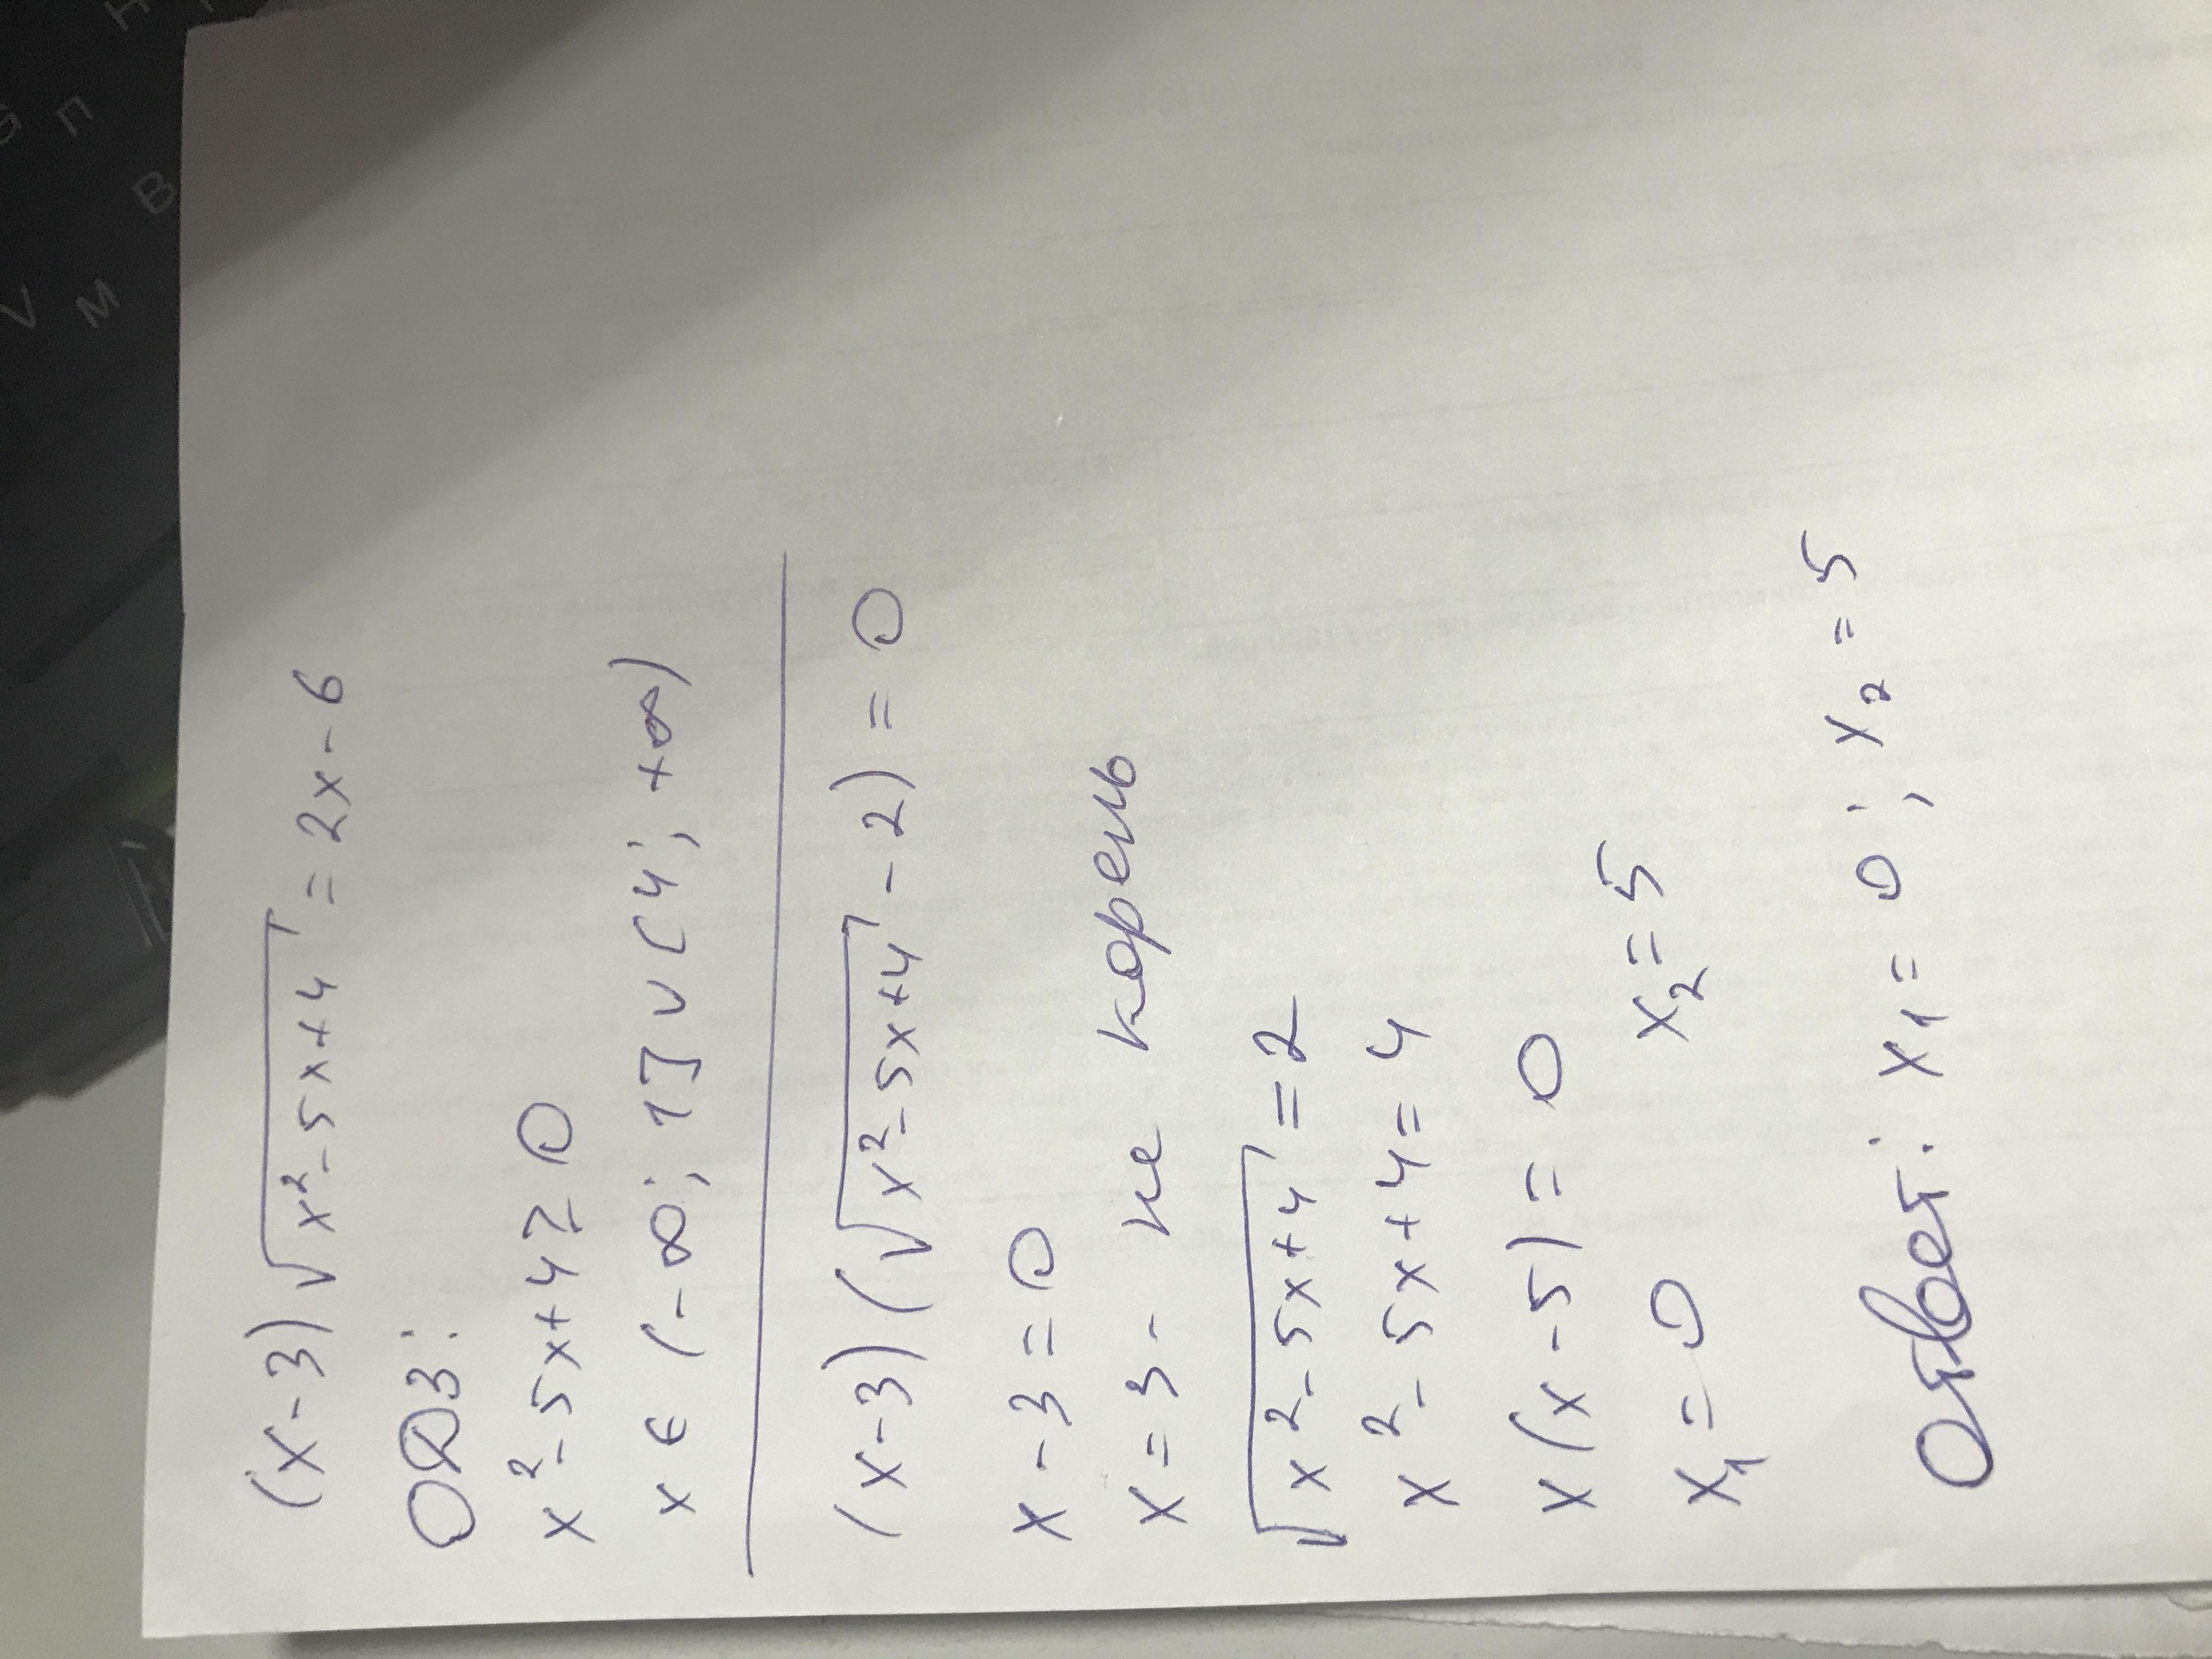 (x-3)√(x²-5x+4) = 2x-6
ОДЗ:
x²-5x+4 ≥ 0
x ∈ (-∞; 1] ∪ [4; +∞)
(x-3)(√(x²-5x+4) - 2) = 0
x-3 = 0
x = 3 - не корень
√(x²-5x+4) = 2
x²-5x+4 = 4
x(x-5) = 0
x₁ = 0 x₂ = 5
Ответ: x₁ = 0; x₂ = 5